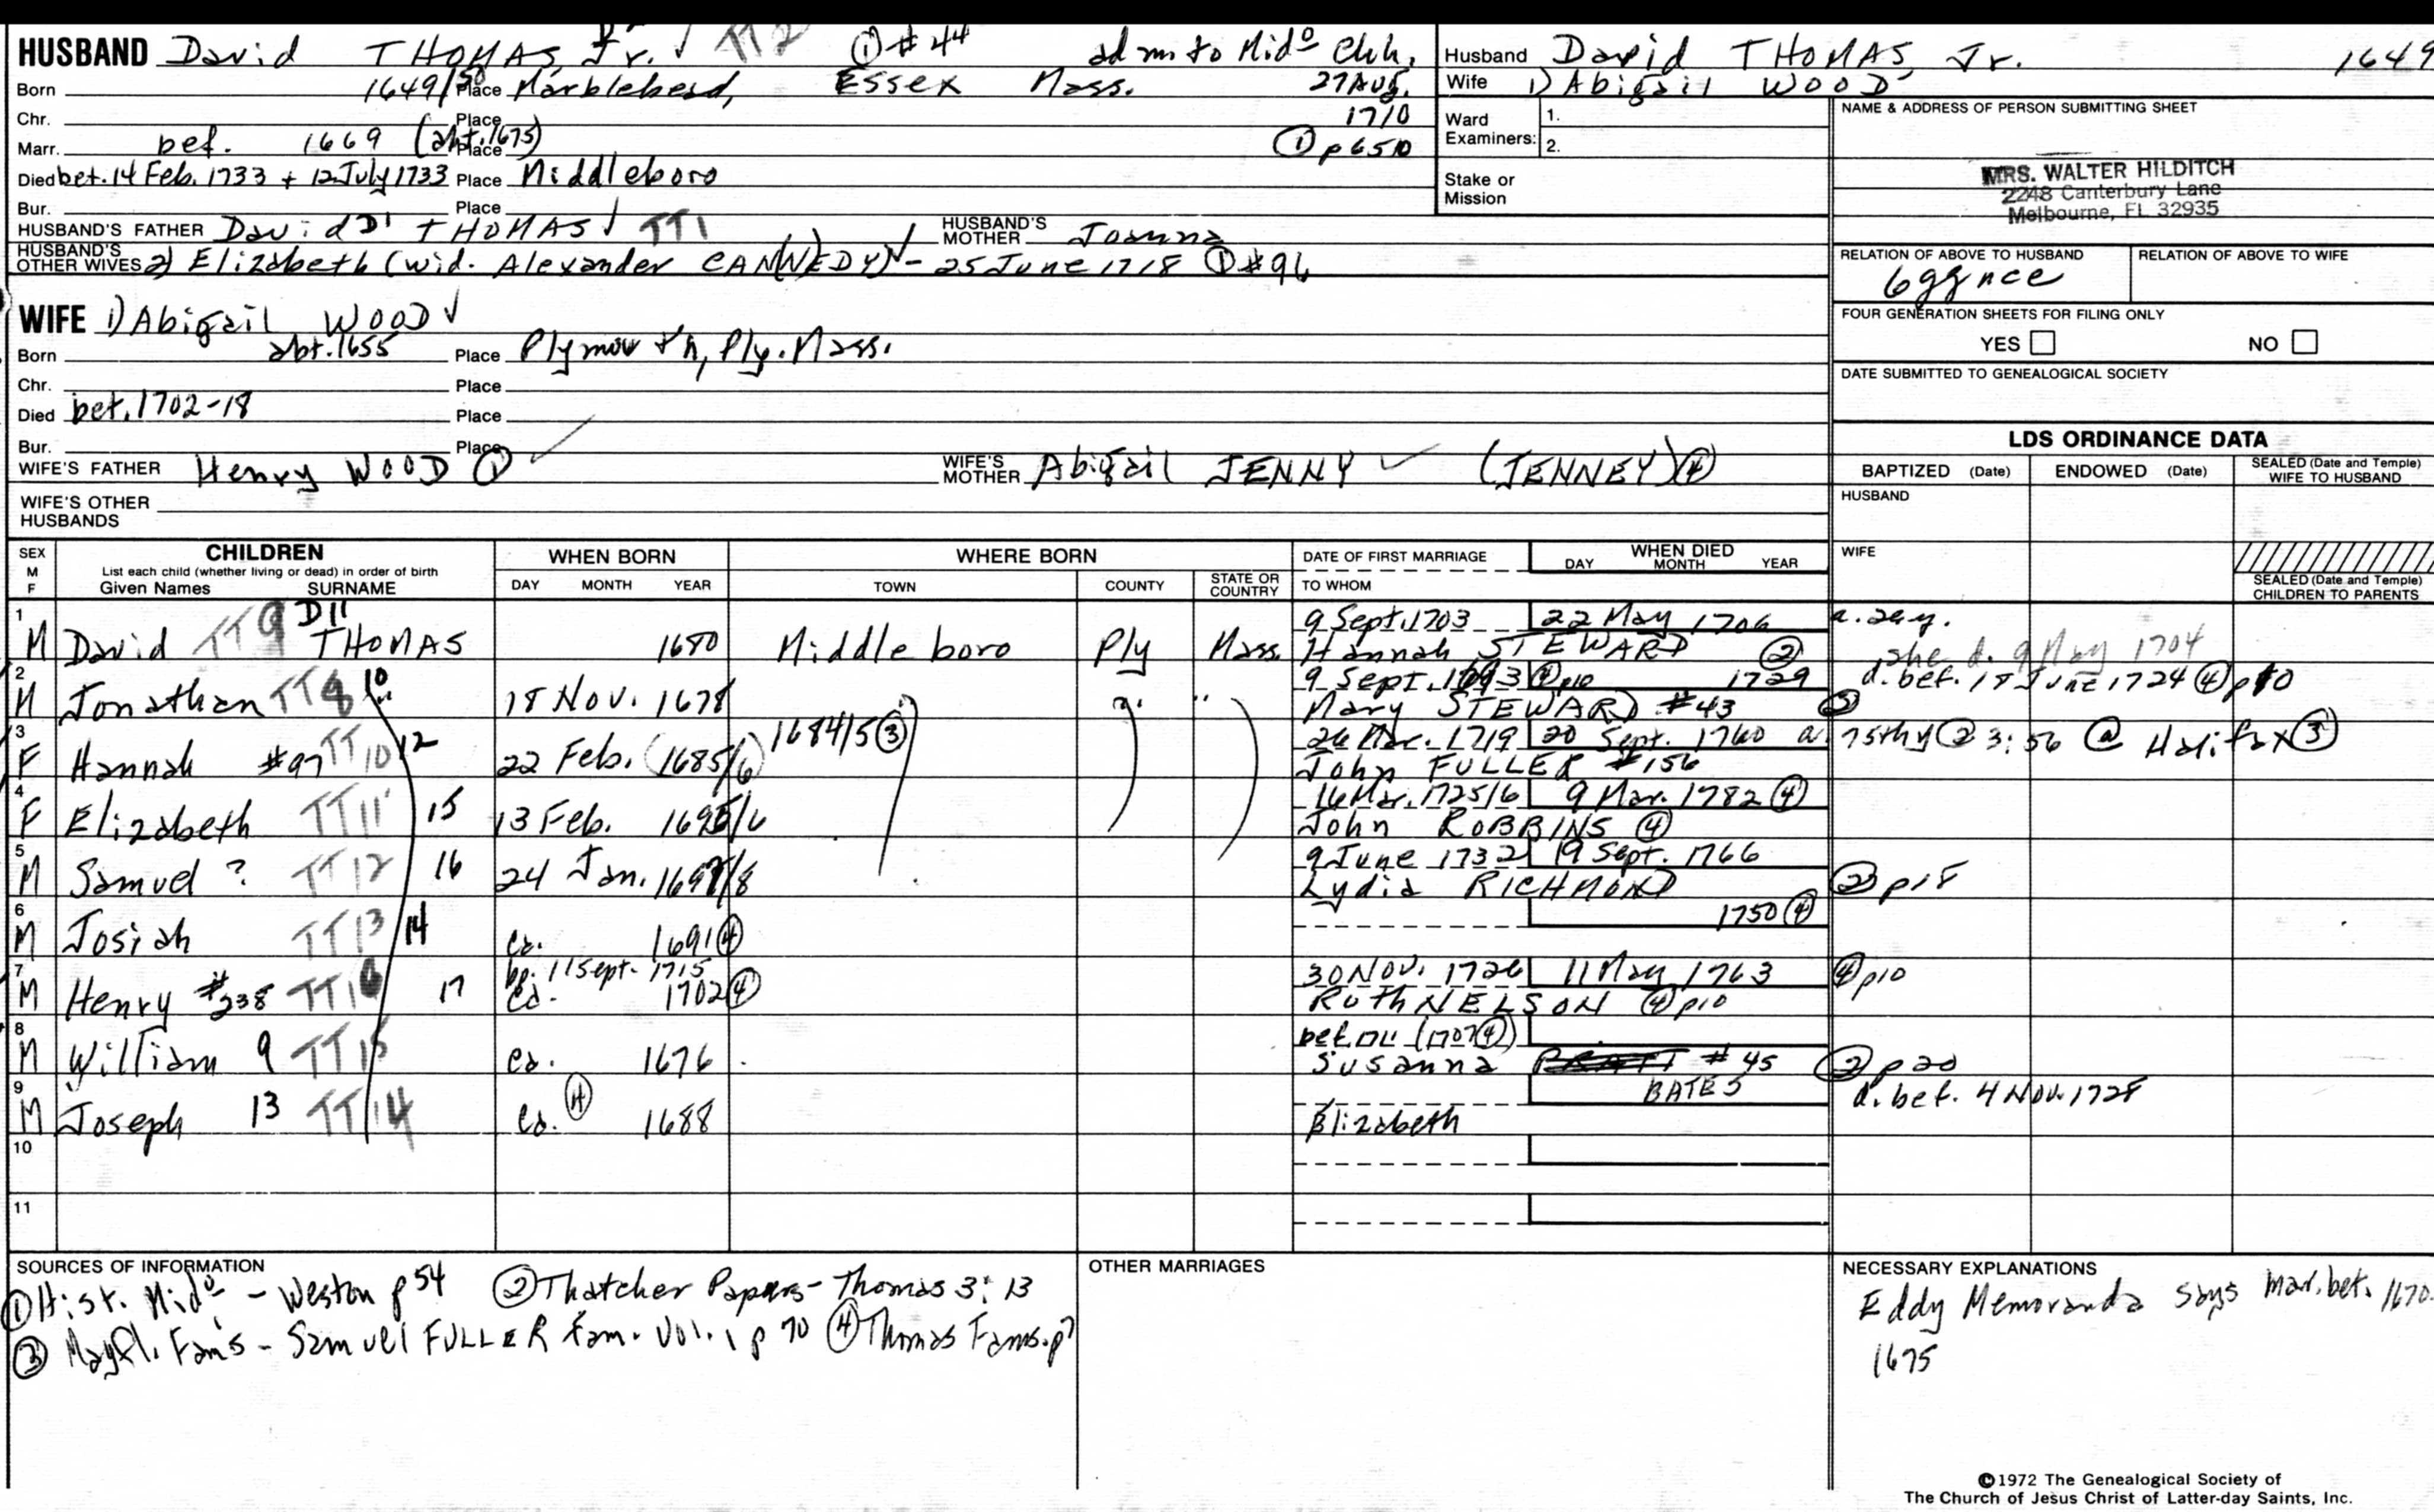 HUSBAND David THOMAS, Jr. ✓ TT2 ① #44 adm to Midº Chh,
Born 1649/50 Place Marblehead, Essex Mass. 27 Aug.
Chr. Place 1710
Marr. bef. 1669 (abt. 1675) Place ① p 650
Died bet. 14 Feb. 1733 + 12 July 1733 Place Middleboro
Bur. Place
HUSBAND'S FATHER David D1 THOMAS ✓ TT1 HUSBAND'S MOTHER Joanna
HUSBAND'S OTHER WIVES 2) Elizabeth (wid. Alexander CAN(N)EDY) ✓ - 25 June 1718 ① #96
WIFE 1) Abigail WOOD ✓
Born abt. 1655 Place Plymouth, Ply. Mass.
Chr. Place
Died bet. 1702-18 Place
Bur. Place
WIFE'S FATHER Henry WOOD ① ✓ WIFE'S MOTHER Abigail JENNY ✓ (JENNEY) ④
WIFE'S OTHER HUSBANDS
Husband David THOMAS, Jr. 1649
Wife 1) Abigail WOOD
Ward Examiners: 1.
2.
Stake or Mission
NAME & ADDRESS OF PERSON SUBMITTING SHEET
MRS. WALTER HILDITCH
2248 Canterbury Lane
Melbourne, FL 32935
RELATION OF ABOVE TO HUSBAND RELATION OF ABOVE TO WIFE
6ggnce
FOUR GENERATION SHEETS FOR FILING ONLY
YES NO
DATE SUBMITTED TO GENEALOGICAL SOCIETY
LDS ORDINANCE DATA
BAPTIZED (Date) ENDOWED (Date) SEALED (Date and Temple) WIFE TO HUSBAND
HUSBAND
WIFE
SEALED (Date and Temple) CHILDREN TO PARENTS
SEX M F
CHILDREN
List each child (whether living or dead) in order of birth
Given Names SURNAME
WHEN BORN
DAY MONTH YEAR
WHERE BORN
TOWN COUNTY STATE OR COUNTRY
DATE OF FIRST MARRIAGE
TO WHOM
WHEN DIED
DAY MONTH YEAR
1 9 Sept. 1703 22 May 1706 a. 26y.
M David TT9 D11 THOMAS 1680 Middleboro Ply Mass. Hannah STEWARD ② she d. 9 May 1704
2 9 Sept. ④ p10 1729 d. bef. 18 June 1724 ④ p10
M Jonathan TT8 10 18 Nov. 1678 Mary STEWARD #43
3 1684/5 ③ 26 Mar. 1719 20 Sept. 1760 a. 75thy ② 3:56 @ Halifax ③
F Hannah #97 TT10 12 22 Feb. (1685/6) John FULLER #156
4 16 Mar. 1725/6 9 Mar. 1782 ④
F Elizabeth TT11 15 13 Feb. 1695/6 John ROBBINS ④
5 9 June 1732 19 Sept. 1766
M Samuel ? TT12 16 24 Jan. 1697/8 Lydia RICHMOND ② p18
6 1750 ④
M Josiah TT13 14 ca. 1691 ④
7 bp. 11 Sept. 1715 30 Nov. 1726 11 May 1763 ④ p10
M Henry #238 TT16 17 ca. 1702 ④ Ruth NELSON ④ p10
8 bef. 1711 (1707 ④)
M William 9 TT15 ca. 1676 Susanna PRATT #45 ② p20
9 BATES d. bef. 4 Nov. 1728
M Joseph 13 TT14 ca. ④ 1688 Elizabeth
10
11
SOURCES OF INFORMATION
① Hist. Midº - Weston p 54 ② Thatcher Papers - Thomas 3:13
③ Mayfl. Fams - Samuel FULLER Fam. Vol. 1 p 70 ④ Thomas Fams. p7
OTHER MARRIAGES
NECESSARY EXPLANATIONS
Eddy Memoranda says mar. bet. 1670-
1675
©1972 The Genealogical Society of
The Church of Jesus Christ of Latter-day Saints, Inc.